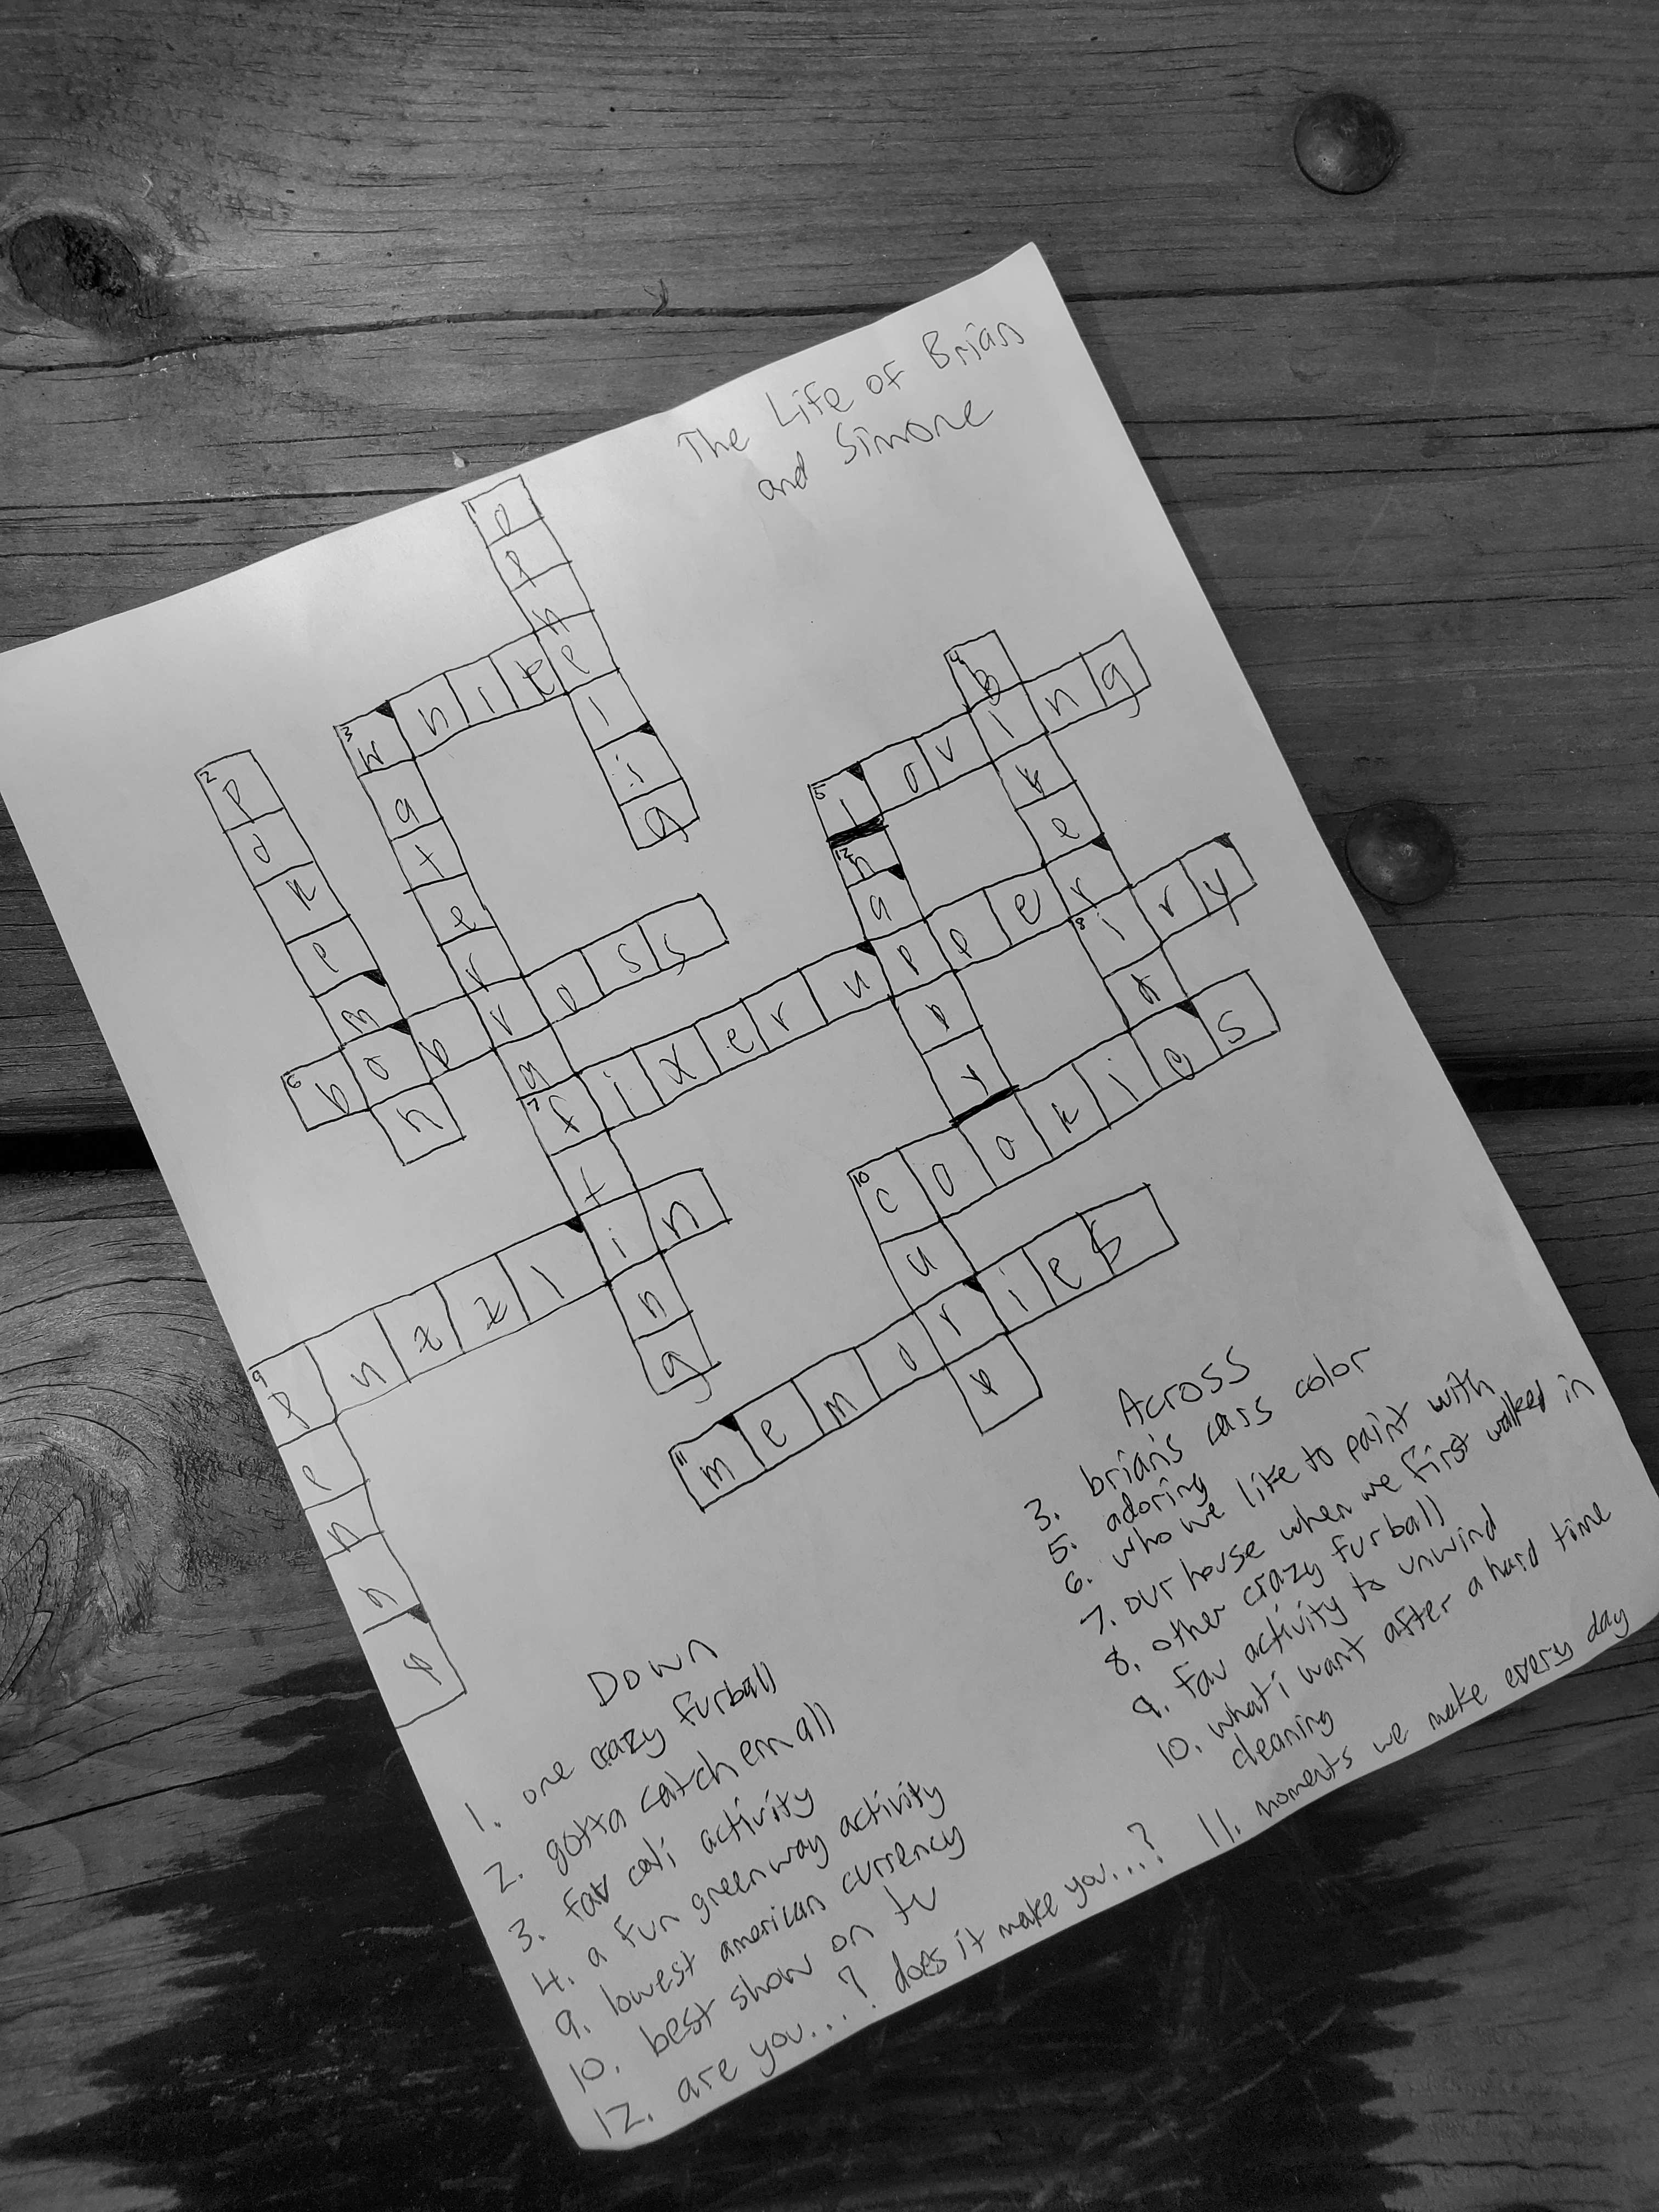 The Life of Brian
and Simone
1 p e n e l i g
3 w h i t e
2 p o k e m o n
3 w a t e r r a f t i n g
4 B i k e r i
5 l o v i n g
12 h a p p y
6 b o b r o s s
7 f i x e r u p p e r
8 i r y
10 c o o k i e s
9 p u z z l i n
10 c u r e
11 m e m o r i e s
9 p e n n y
Across
3. brian's cars color
5. adoring
6. who we like to paint with
7. our house when we first walked in
8. other crazy furball
9. fav activity to unwind
10. what i want after a hard time
cleaning
11. moments we make every day
Down
1. one crazy furball
2. gotta catch em all
3. fav cali activity
4. a fun greenway activity
9. lowest american currency
10. best show on tv
12. are you...? does it make you...?